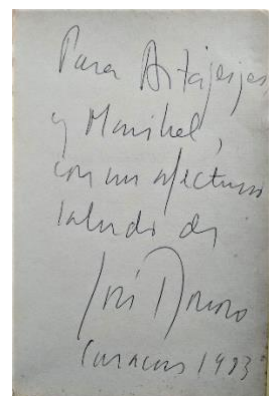 Para Artajerjes
y Maribel,
con un afectuoso
saludo de
José Donoso
Caracas 1983